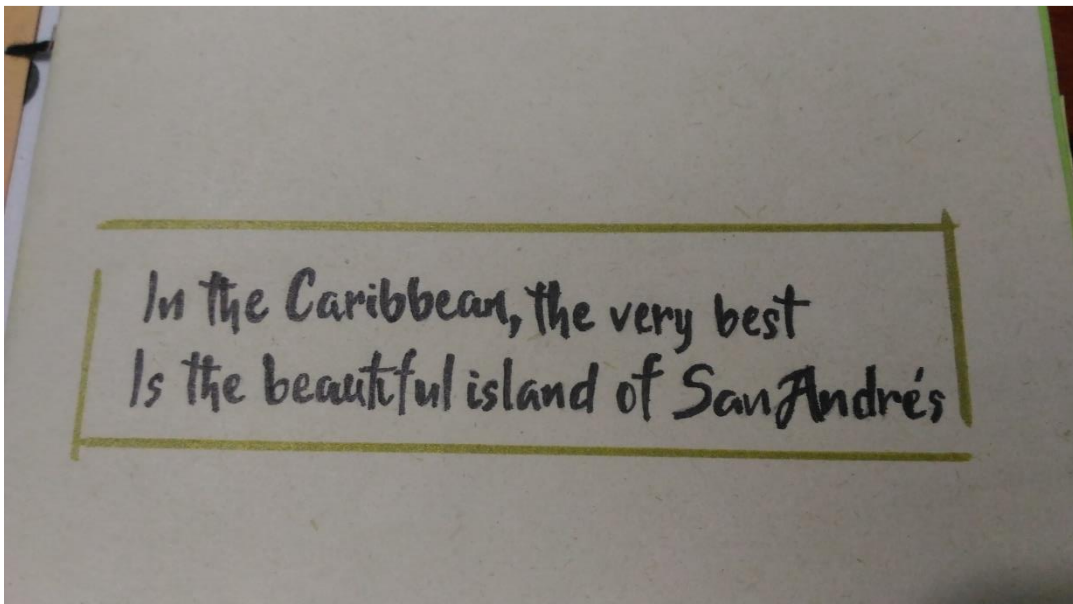 In the Caribbean, the very best
Is the beautiful island of San Andrés